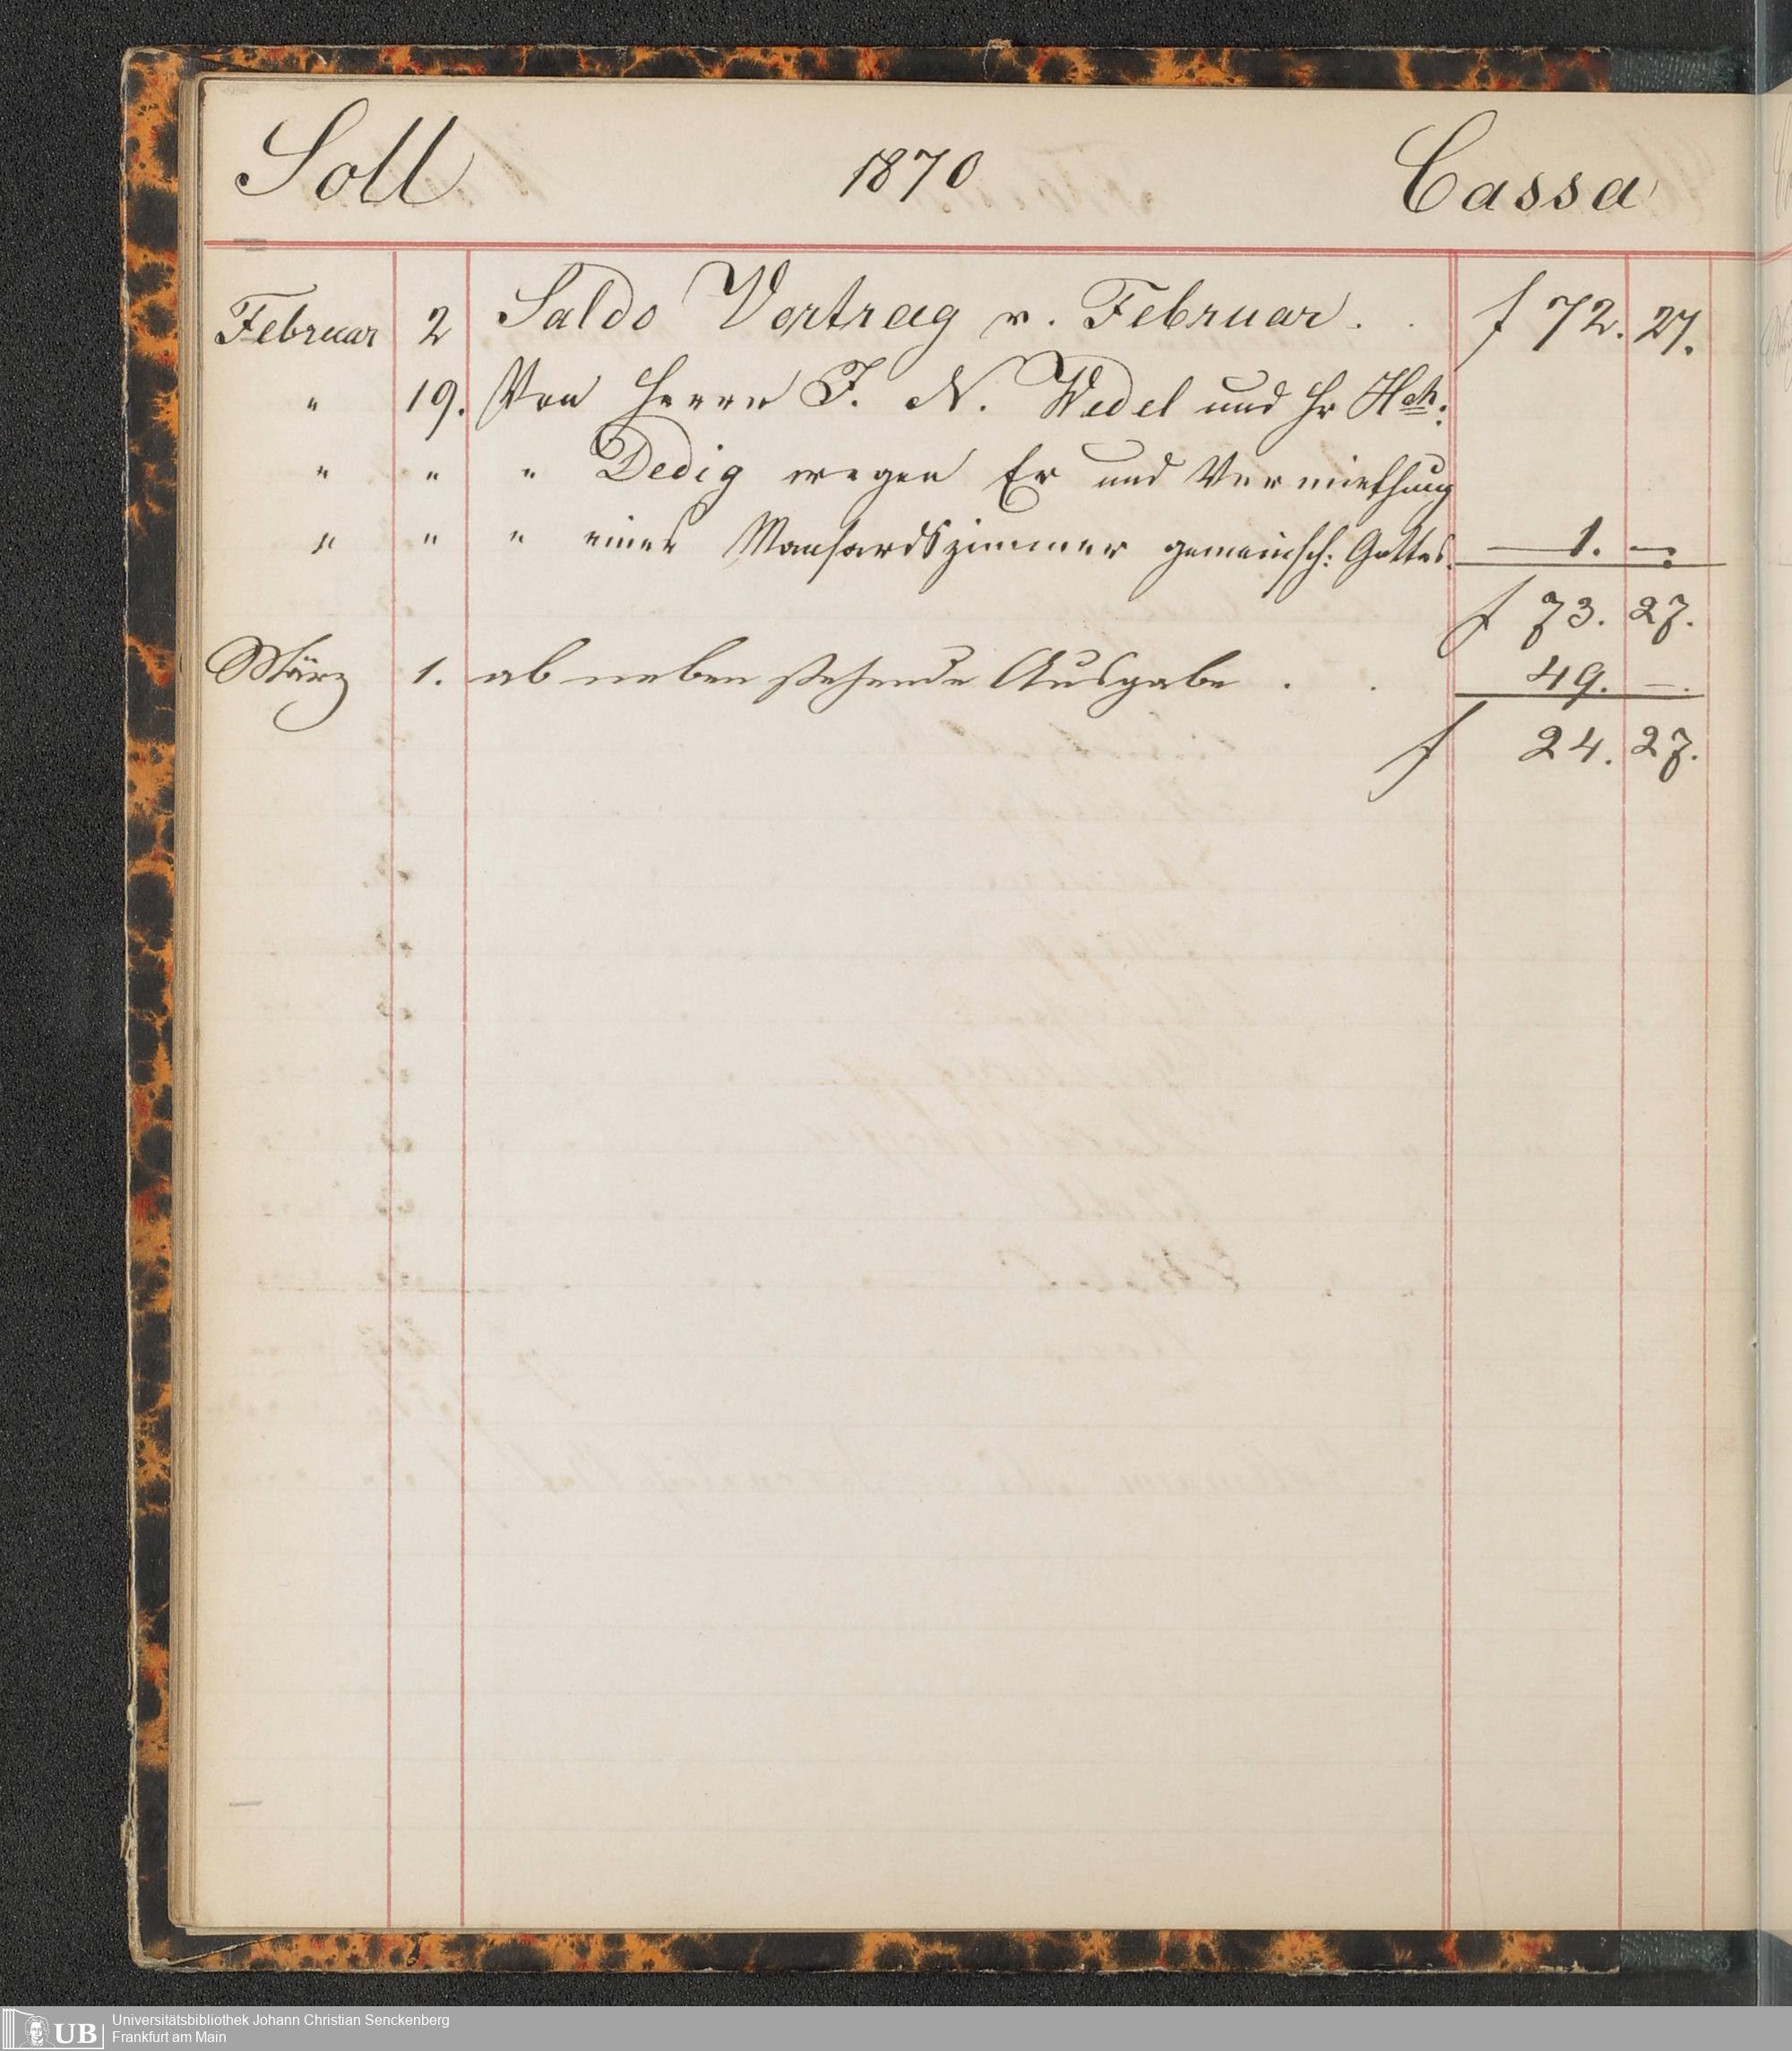 Soll 1870 Cassa
Februar 2 Saldo Vortrag v. Februar . . f 72. 27.
" 19. Von Herrn F. N. Wedel und Hr Hch:
" " " Dedig wegen Er und Vermiethung
" " " eines Mansardszimmer gemeinsch: Gottes. — 1. —.
f 73. 27.
März 1. ab neben stehende Ausgabe . . 49. —.
f 24. 27.
UB Universitätsbibliothek Johann Christian Senckenberg
Frankfurt am Main